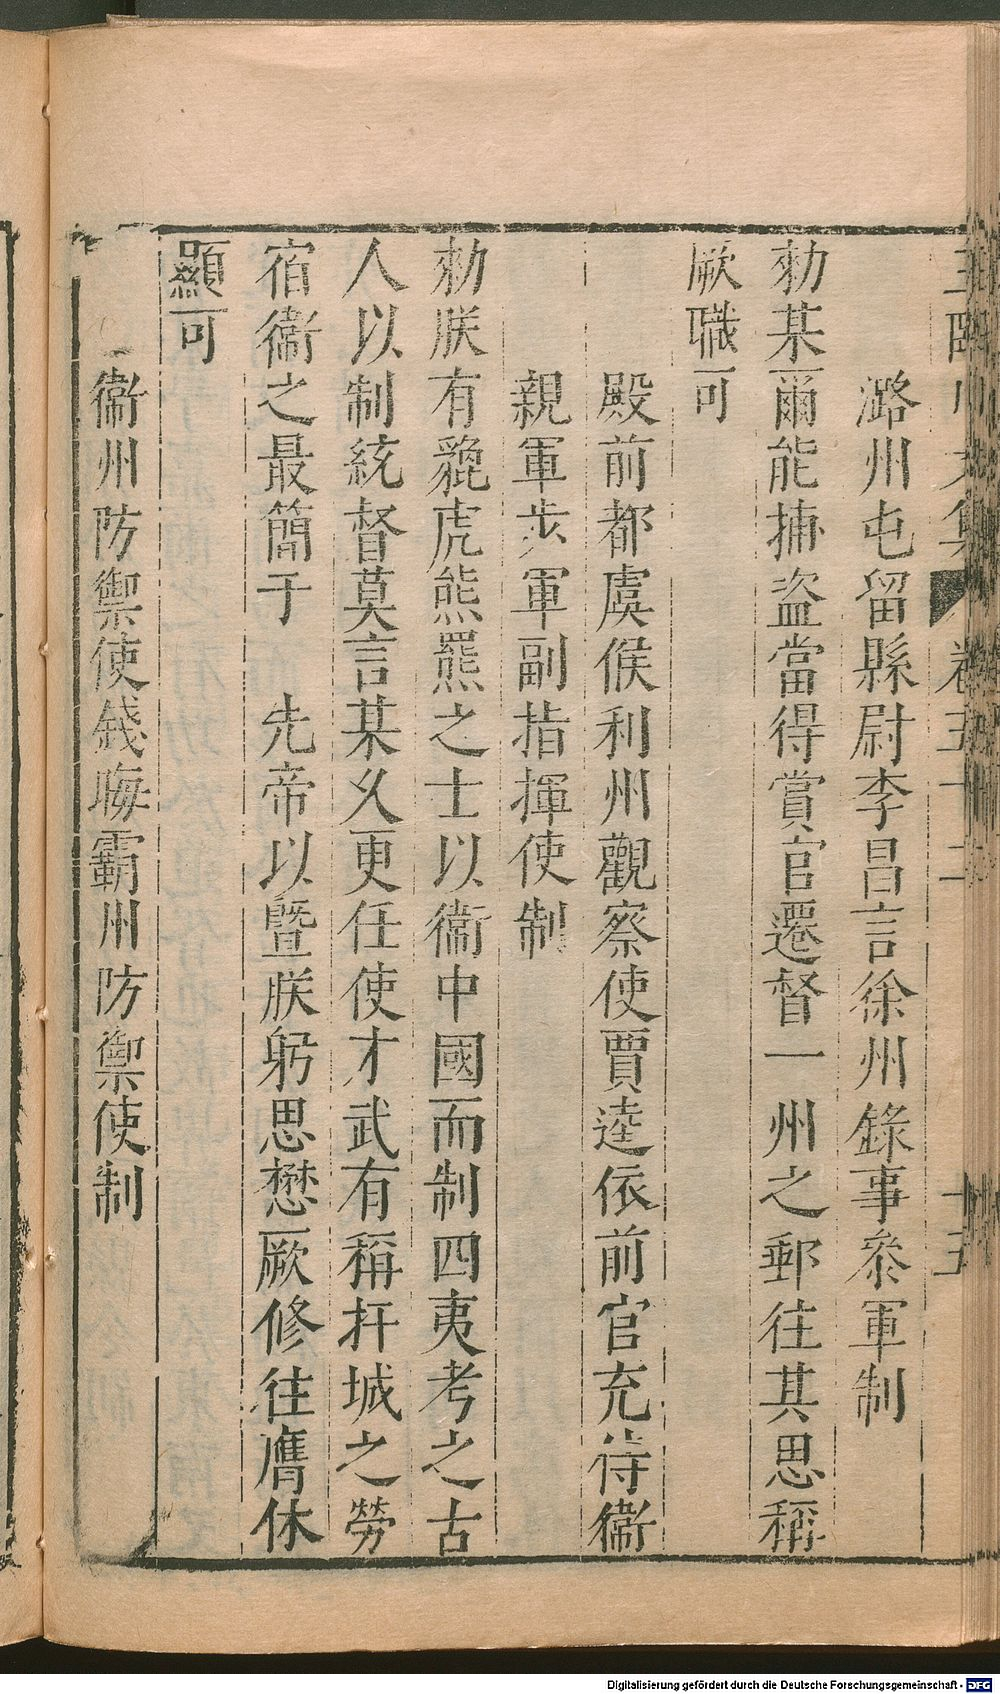 王臨川文集 卷五十二 十五
潞州屯留縣尉李昌言徐州錄事參軍制
勑某爾能捕盗當得賞官遷督一州之郵往其思稱
厥職可
殿前都虞候利州觀察使賈逵依前官充侍衞
親軍步軍副指揮使制
勑朕有貔虎熊羆之士以衞中國而制四夷考之古
人以制統督莫言某乆更任使才武有稱扞城之勞
宿衞之最簡于　先帝以曁朕躬思懋厥修往膺休
顯可
衞州防禦使錢晦霸州防禦使制
Digitalisierung gefördert durch die Deutsche Forschungsgemeinschaft - DFG